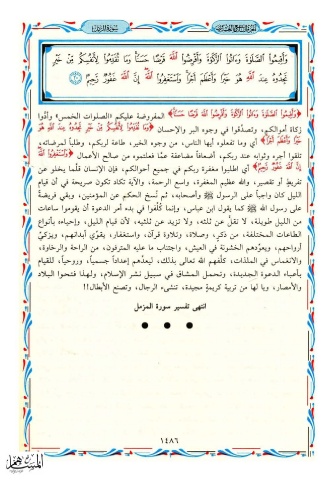 وَأَقِيمُوا۟ ٱلصَّلَوٰةَ وَءَاتُوا۟ ٱلزَّكَوٰةَ وَأَقْرِضُوا۟ ٱللَّهَ قَرْضًا حَسَنًا وَمَا تُقَدِّمُوا۟ لِأَنفُسِكُم مِّنْ خَيْرٍ
تَجِدُوهُ عِندَ ٱللَّهِ هُوَ خَيْرًا وَأَعْظَمَ أَجْرًا وَٱسْتَغْفِرُوا۟ ٱللَّهَ إِنَّ ٱللَّهَ غَفُورٌ رَّحِيمٌۢ ﴿٢٠﴾
﴿وَأَقِيمُوا۟ ٱلصَّلَوٰةَ وَءَاتُوا۟ ٱلزَّكَوٰةَ وَأَقْرِضُوا۟ ٱللَّهَ قَرْضًا حَسَنًا﴾ المفروضة عليكم «الصلوات الخمس» وأدّوا
زكاة أموالكم، وتصدَّقوا في وجوه البر والإحسان ﴿وَمَا تُقَدِّمُوا۟ لِأَنفُسِكُم مِّنْ خَيْرٍ تَجِدُوهُ عِندَ ٱللَّهِ هُوَ
خَيْرًا وَأَعْظَمَ أَجْرًا﴾ أي وما تفعلوه أيها الناس، من وجوه الخير، طاعة لربكم، وطلباً لمرضاته،
تلقوا أجره وثوابه عند ربكم، أضعافاً مضاعفة عمَّا فعلتموه من صالح الأعمال ﴿وَٱسْتَغْفِرُوا۟ ٱللَّهَ
إِنَّ ٱللَّهَ غَفُورٌ رَّحِيمٌ﴾ أي اطلبوا مغفرة ربكم في جميع أحوالكم، فإن الإنسان قلَّما يخلو عن
تفريطٍ أو تقصير، والله عظيم المغفرة، واسع الرحمة، والآية تكاد تكون صريحة في أن قيام
الليل كان واجباً على الرسول ﷺ وأصحابه، ثم نُسخ الحكم عن المؤمنين، وبقي فريضةً
على رسول الله ﷺ كما يقول ابن عباس، وإنما كُلِّفوا في بدء أمر الدعوة أن يقوموا ساعات
من الليل طويلة، لا تقلُّ عن ثلثه، ولا تزيد عن ثلثيه، لأن قيام الليل، وإحياءه بأنواع
الطاعات المختلفة، من ذكرٍ، وصلاة، وتلاوة قرآن، واستغفار، يقوّي أبدانهم، ويزكّي
أرواحهم، ويعوِّدهم الخشونة في العيش، واجتناب ما عليه المترفون، من الراحة والرخاوة،
والانغماس في الملذات، كلَّفهم الله تعالى بذلك، ليعدّهم إعداداً جسمياً، وروحياً، للقيام
بأعباء الدعوة الجديدة، وتحمل المشاق في سبيل نشر الإسلام، ولهذا فتحوا البلاد
والأمصار، ويا لها من تربية كريمةٍ مجيدة، تنشىء الرجال، وتصنع الأبطال!!
انتهى تفسير سورة المزمل
١٤٨٦